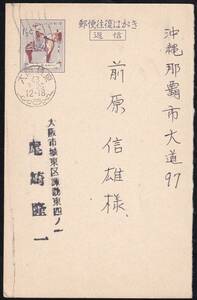 郵便往復はがき
返信
沖縄那覇市大道
97
前原信雄様
大阪市城東区諏訪東四ノ一
尾崎隆一
12-18